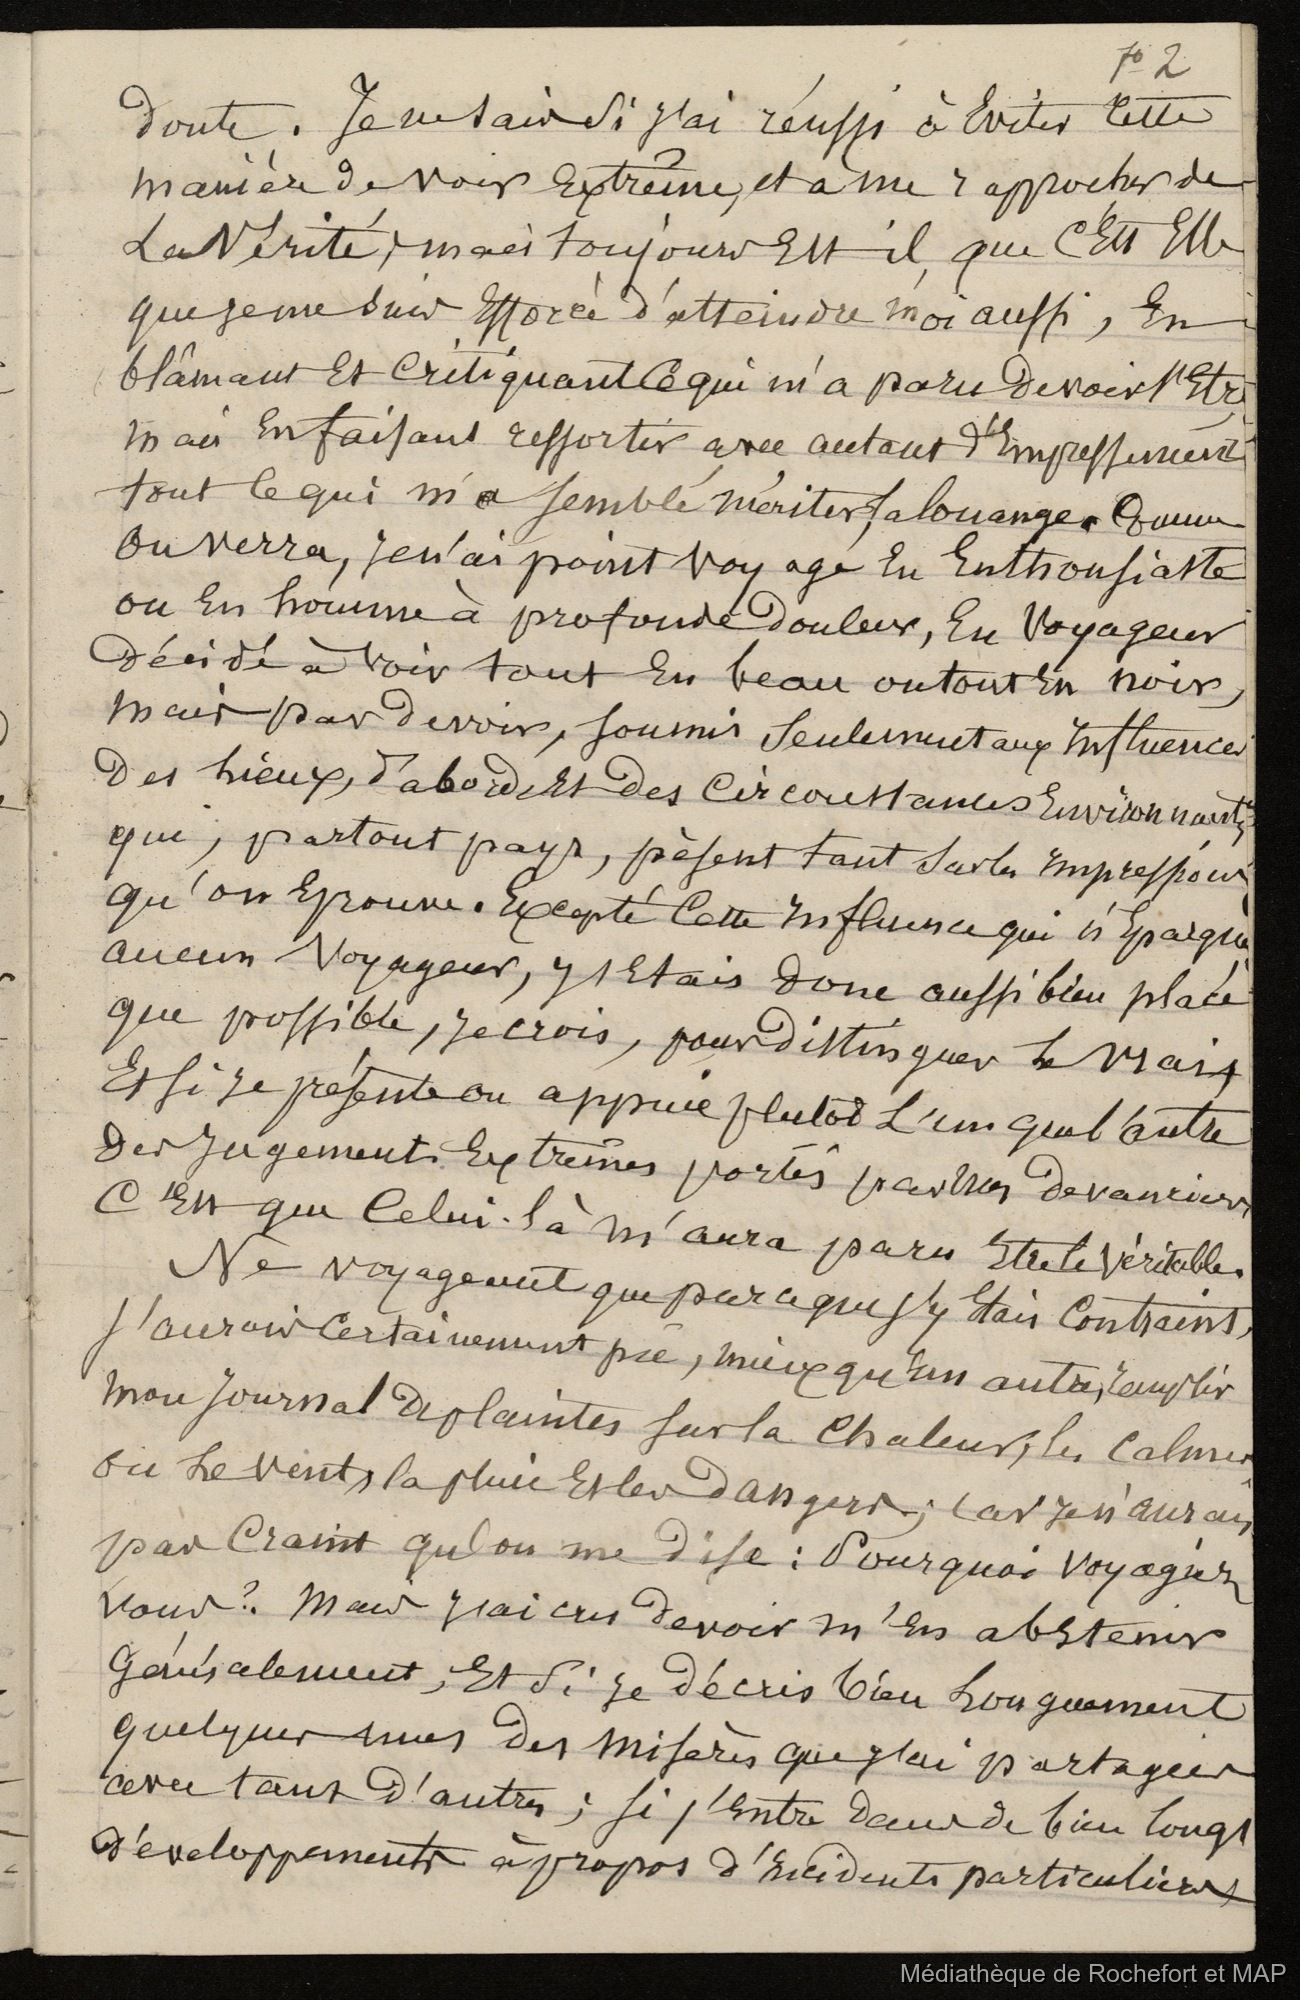 fo 2
doute. Je ne sais si j'ai réussi à Eviter Cette
manière de voir Extrême, et à me rapprocher de
La Vérité, mais toujours Est il, que C'Est Elle
que je me suis Efforcé d'atteindre moi aussi, En
blâmant Et Critiquant Ce qui m'a paru Devoir l'Etre,
mais En faisant ressortir avec autant d'Empressement
tout Ce qui m'a semblé mériter la louange. Comme
on verra, je n'ai point voyagé En Enthousiaste
ou En homme à profonde Douleur, En Voyageur
Décidé à voir tout En beau ou tout En noir,
mais par Devoir, soumis seulement aux Influences
Des Lieux, d'abord, Et Des Circonstances Environnantes
qui, partout pays, pèsent tant sur les Impressions
qu'on Eprouve. Excepté Cette Influence qui n'Epargne
aucun Voyageur, j'Etais Donc aussi bien placé
que possible, je crois, pour Distinguer Le vrai,
Et si je présente ou appuie plutôt L'un que l'autre
Des Jugements Extrêmes portés par mes Devanciers,
C'Est que Celui-là m'aura paru Etre le Véritable.
Ne voyageant que parceque j'y Etais Contraint,
j'aurois Certainement pu, mieux qu'un autre, remplir
mon Journal De plaintes sur la Chaleur, les Calmes
ou Le vent, la pluie Et les Dangers; Car je n'aurais
pas Craint qu'on me Dise: Pourquoi voyagiez
vous? Mais j'ai cru Devoir m'En abstenir
Généralement, Et si je Décris bien Longuement
quelques unes Des misères que j'ai partagées
avec tant D'autres; si j'Entre Dans De bien longs
Développements à propos d'Incidents particuliers,
Médiathèque de Rochefort et MAP